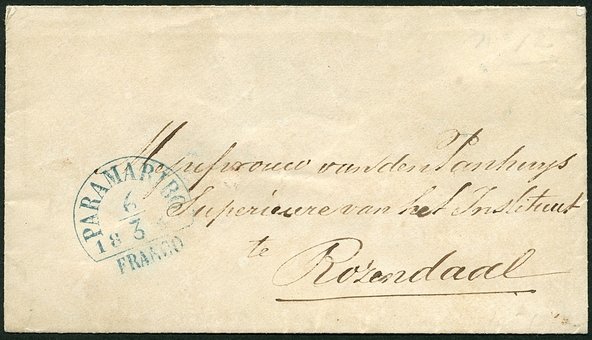 Mejufvrouw van den Panhuys
Superieure van het Instituut
te
Rozendaal
PARAMARIBO
6
3
18
FRANCO